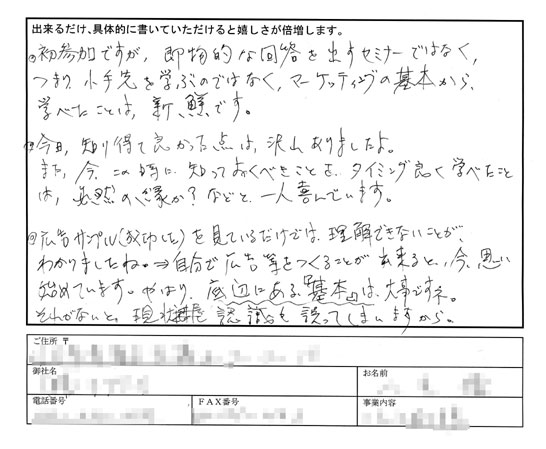 出来るだけ、具体的に書いていただけると嬉しさが倍増します。
◎初参加ですが、即物的な回答を出すセミナーではなく、
つまり小手先を学ぶのではなく、マーケッティングの基本から、
学べたことは、新鮮です。
◎今日、知り得て良かった点は、沢山ありましたよ。
また、今、この時に知っておくべきことを、タイミング良く学べたこと
は、必然のご縁か?などと、一人喜んでいます。
◎広告サンプル(成功した)を見ているだけでは、理解できないことが、
わかりましたね。⇒自分で広告等をつくることが出来ると、今、思い
始めています。やはり、底辺にある『基本』は、大事ですネ。
それがないと、現状 認識を誤ってしまいますから。
ご住所 〒
御社名
お名前
電話番号
FAX番号
事業内容